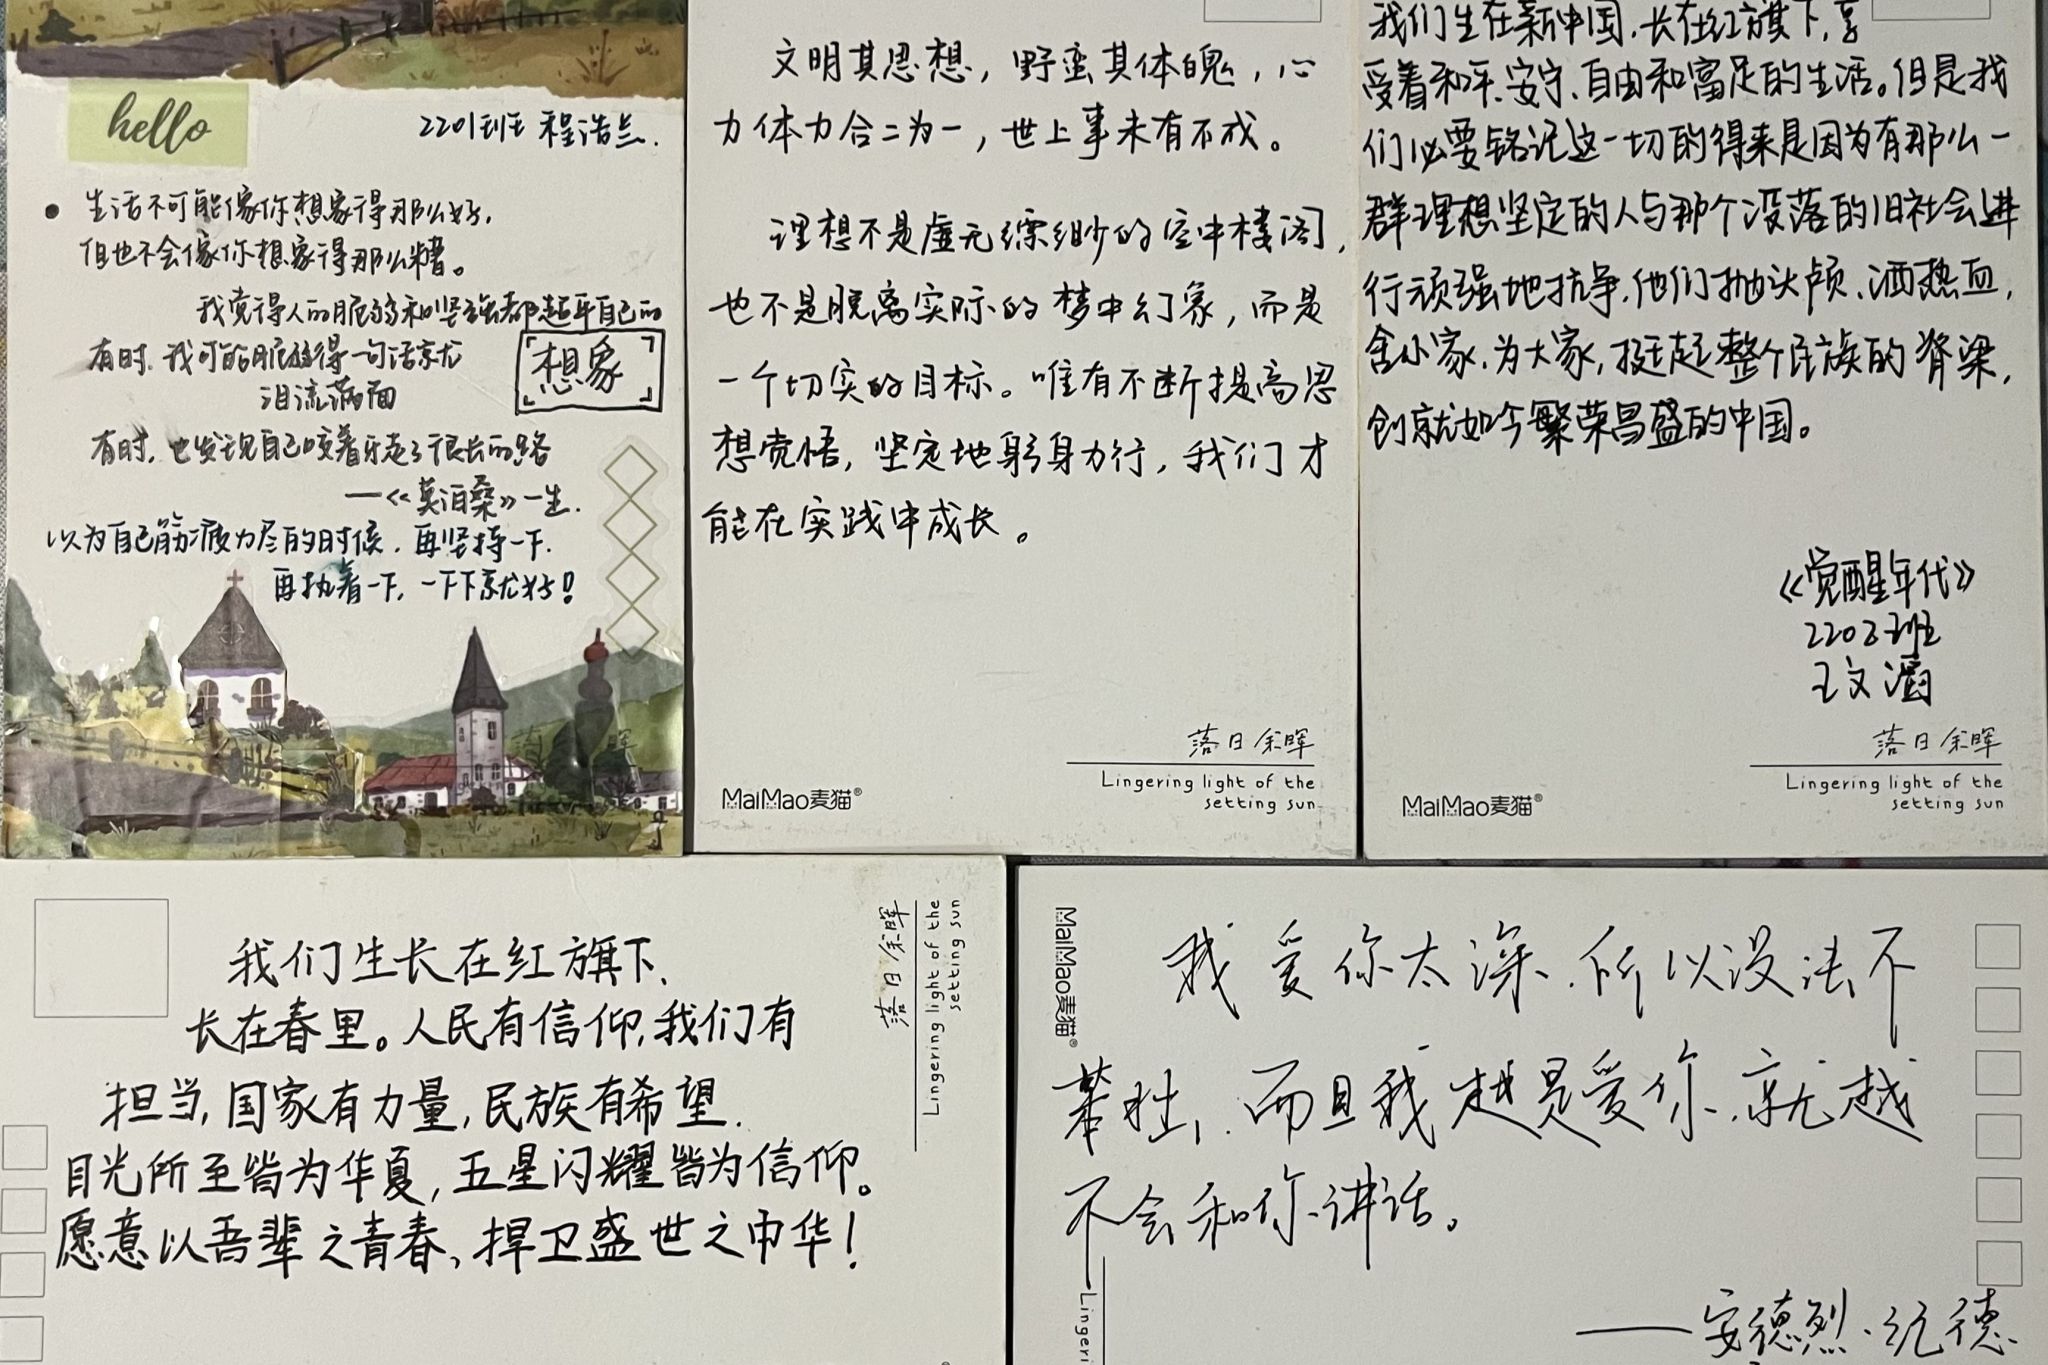 hello
2201班 程浩兰.
生活不可能像你想象得那么好,
但也不会像你想象得那么糟。
我觉得人的脆弱和坚强都超乎自己的
想象
有时.我可能脆弱得一句话就
泪流满面
有时,也发现自己咬着牙走了很长的路
——《莫泊桑》一生.
以为自己筋疲力尽的时候.再坚持一下.
再执着一下.一下下就好!
文明其思想,野蛮其体魄,心
力体力合二为一,世上事未有不成。
理想不是虚无缥缈的空中楼阁,
也不是脱离实际的梦中幻象,而是
一个切实的目标。唯有不断提高思
想觉悟,坚定地躬身力行,我们才
能在实践中成长。
落日余晖
Lingering light of the
setting sun
MaiMao麦猫®
我们生在新中国.长在红旗下,享
受着和平、安宁、自由和富足的生活。但是我
们必要铭记这一切的得来是因为有那么一
群理想坚定的人与那个没落的旧社会进
行顽强地抗争.他们抛头颅、洒热血,
舍小家.为大家,挺起整个民族的脊梁,
创就如今繁荣昌盛的中国。
《觉醒年代》
2202班
王文涵
落日余晖
Lingering light of the
setting sun
MaiMao麦猫®
我们生长在红旗下.
长在春里。人民有信仰,我们有
担当,国家有力量,民族有希望.
目光所至皆为华夏,五星闪耀皆为信仰。
愿意以吾辈之青春,捍卫盛世之中华!
落日余晖
Lingering light of the
setting sun
MaiMao麦猫®
我爱你太深.所以没法不
笨拙.而且我越是爱你.就越
不会和你讲话。
——安德烈·纪德
Lingeri